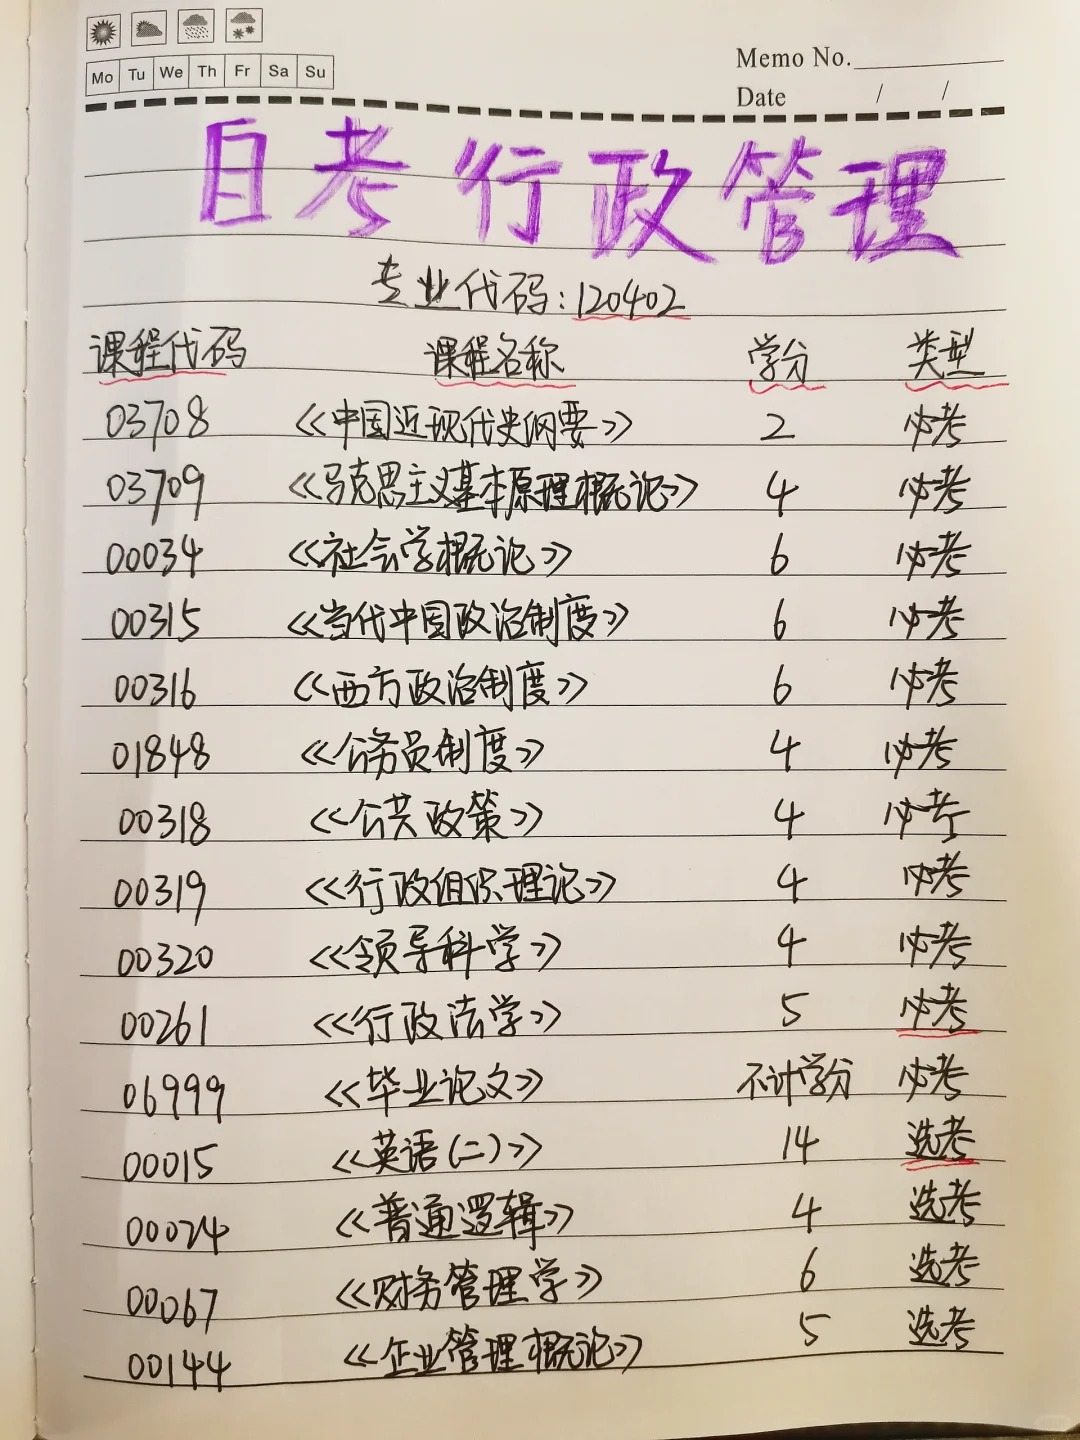 Mo Tu We Th Fr Sa Su
Memo No.
Date / /
自考行政管理
专业代码:120402
课程代码 课程名称 学分 类型
03708 《中国近现代史纲要》 2 必考
03709 《马克思主义基本原理概论》 4 必考
00034 《社会学概论》 6 必考
00315 《当代中国政治制度》 6 必考
00316 《西方政治制度》 6 必考
01848 《公务员制度》 4 必考
00318 《公共政策》 4 必考
00319 《行政组织理论》 4 必考
00320 《领导科学》 4 必考
00261 《行政法学》 5 必考
06999 《毕业论文》 不计学分 必考
00015 《英语(二)》 14 选考
00024 《普通逻辑》 4 选考
00067 《财务管理学》 6 选考
00144 《企业管理概论》 5 选考